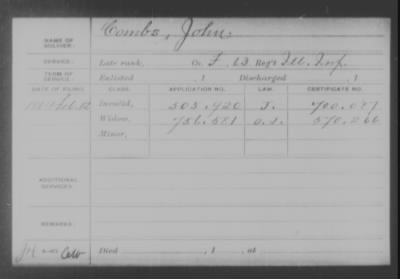 NAME OF SOLDIER: Combs, John.
SERVICE: Late rank, Co. F, 63 Reg't Ill. Inf.
TERM OF SERVICE: Enlisted , 1 Discharged , 1
DATE OF FILING. CLASS. APPLICATION NO. LAW. CERTIFICATE NO.
Feb. 12 Invalid, 503.920 J. 700.077
Widow, 756.581 O.L. 570.266
Minor,
ADDITIONAL SERVICES:
REMARKS:
Died , 1 , at